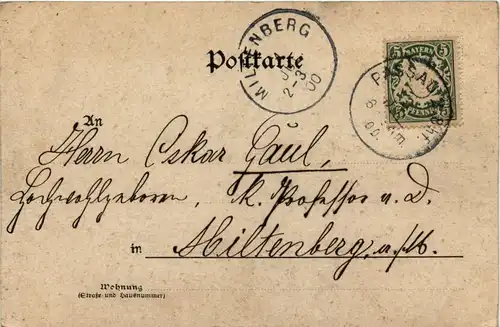 MILTENBERG
2-3
00
Postkarte
5 BAYERN 5
PFENNIG
PASSAU
An
Herrn Oskar Gaul,
Hochwohlgeboren, k. Professor a. D.
in Miltenberg a/M.
Wohnung
(Straße und Hausnummer)